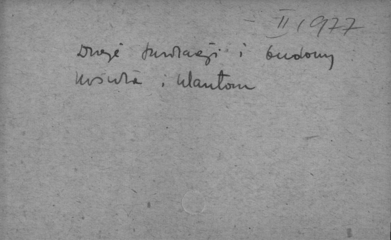 - II 1977
Dzieje fundacji i budowy
kościoła i klasztoru